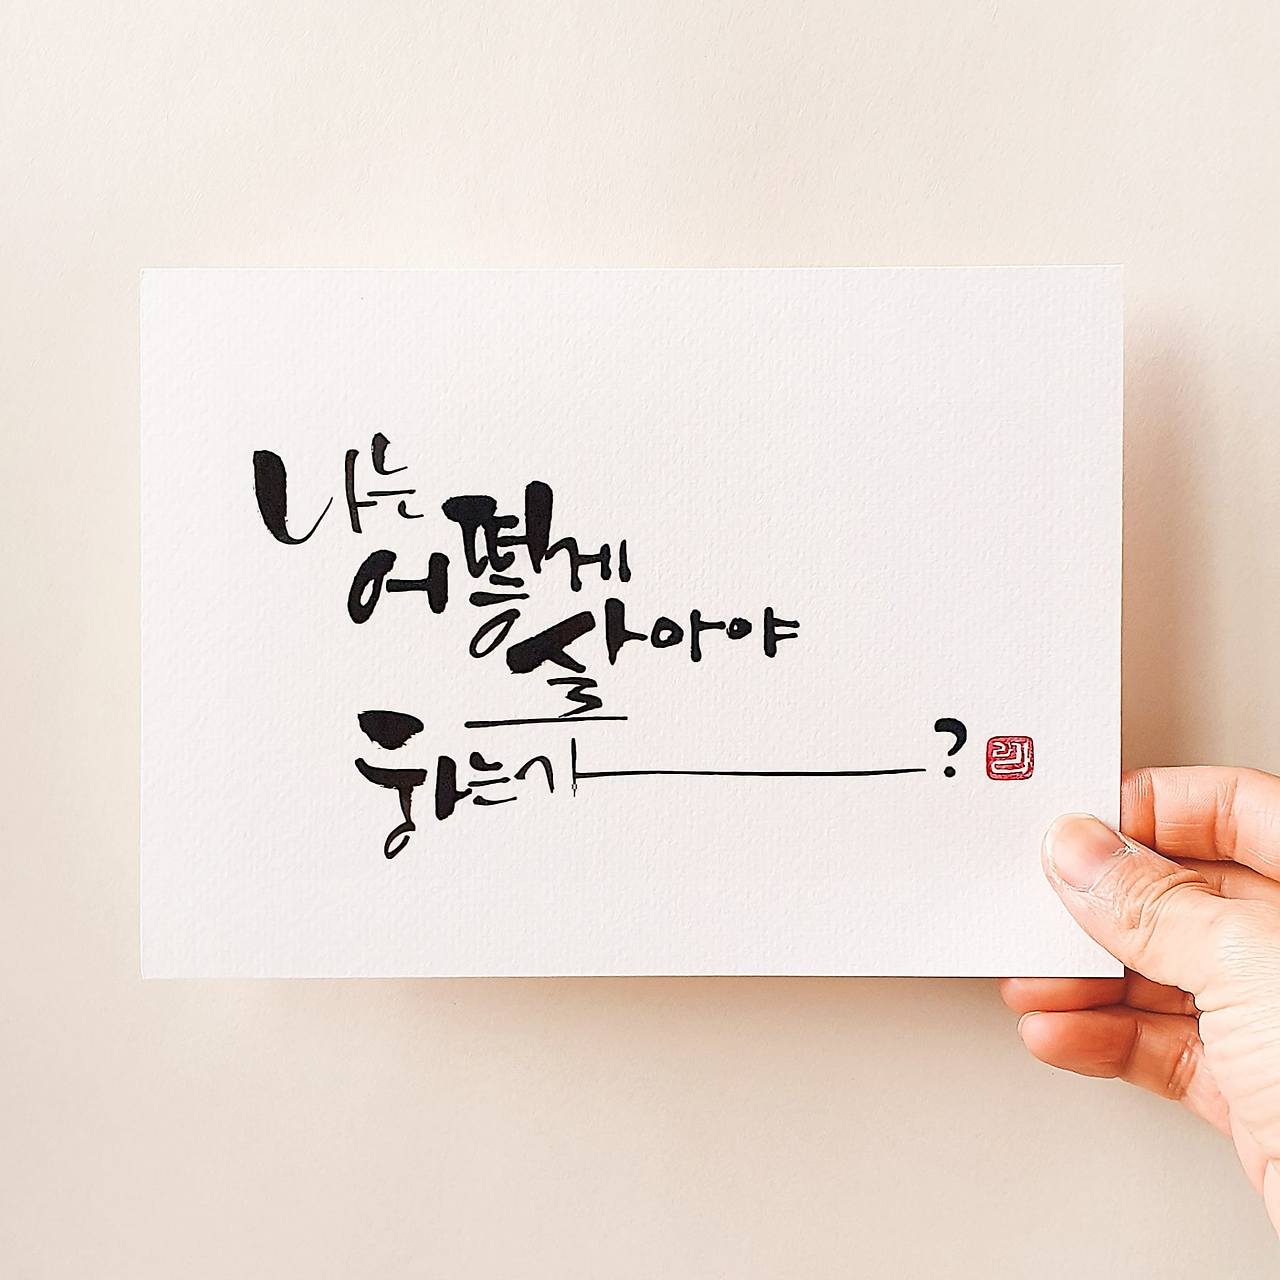 나는
어떻게
살아야
하는가?